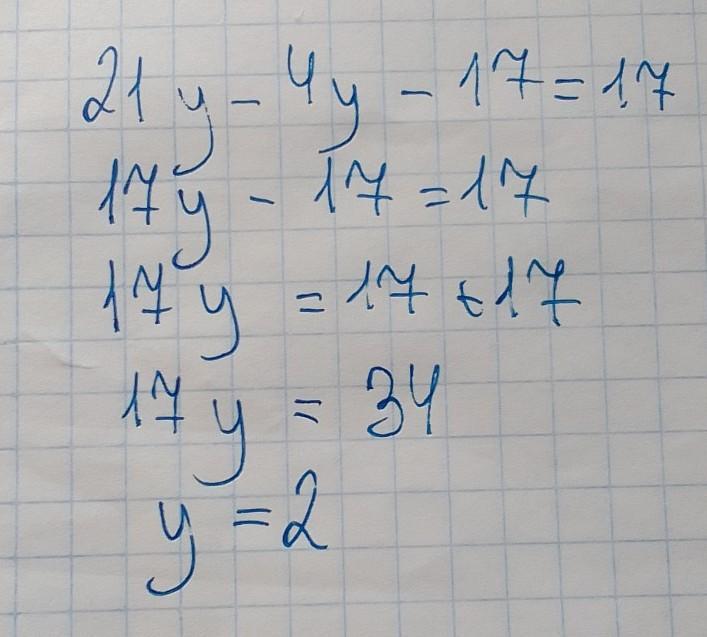 21y - 4y - 17 = 17
17y - 17 = 17
17y = 17 + 17
17y = 34
y = 2